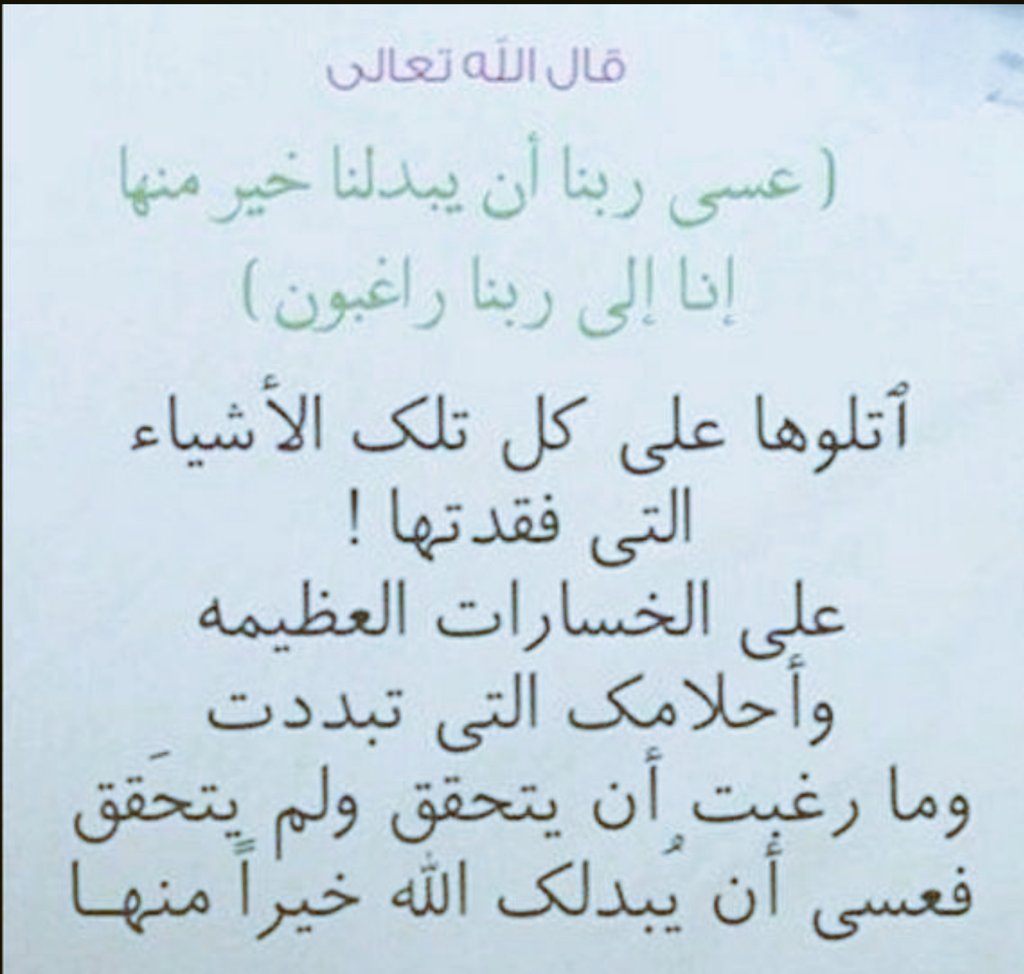 قال الله تعالى
( عسى ربنا أن يبدلنا خير منها
إنا إلى ربنا راغبون )
ٱتلوها على كل تلک الأشياء
التى فقدتها !
على الخسارات العظيمه
وأحلامک التى تبددت
وما رغبت أن يتحقق ولم يتحَقق
فعسى أن يُبدلک الله خيراً منهـا